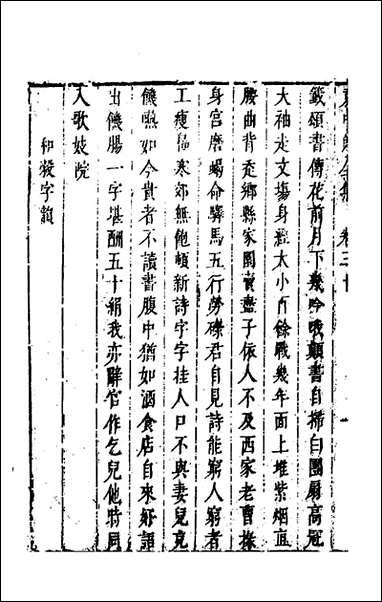 籤頌書傳花前月下幾吟哦顛書自掃白團扇高冠
大袖走文場身經大小百餘戰幾年面上堆紫烟直
腰曲背走鄉縣家園賣盡子依人不及西家老曹掾
身宫磨蝎命驛馬五行勞碌君自見詩能窮人窮者
工瘦島寒郊無飽頓新詩字字挂人口不與妻兒充
饑嚥如今貴者不讀書腹中猶如酒食店自來好語
出饑腸一字堪酬五十絹我亦辭官作乞兒他時同
入歌妓院
和殺字韻